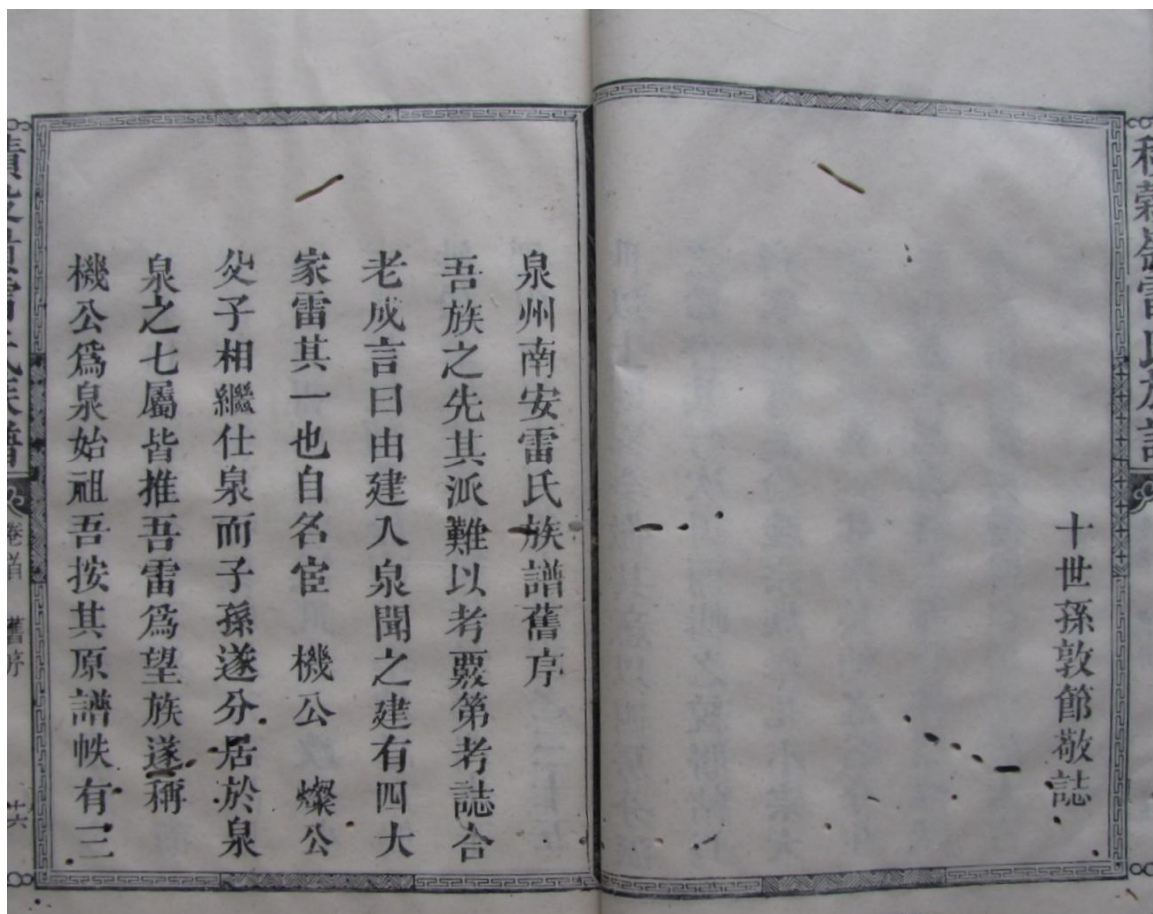 十世孫敦節敬誌
泉州南安雷氏族譜舊序
吾族之先其派難以考覈第考誌合
老成言曰由建入泉聞之建有四大
家雷其一也自名宦 機公 燦公
父子相繼仕泉而子孫遂分居於泉
泉之七屬皆推吾雷爲望族遂稱
機公爲泉始祖吾按其原譜帙有三
雷氏族譜
卷首
舊序
十六